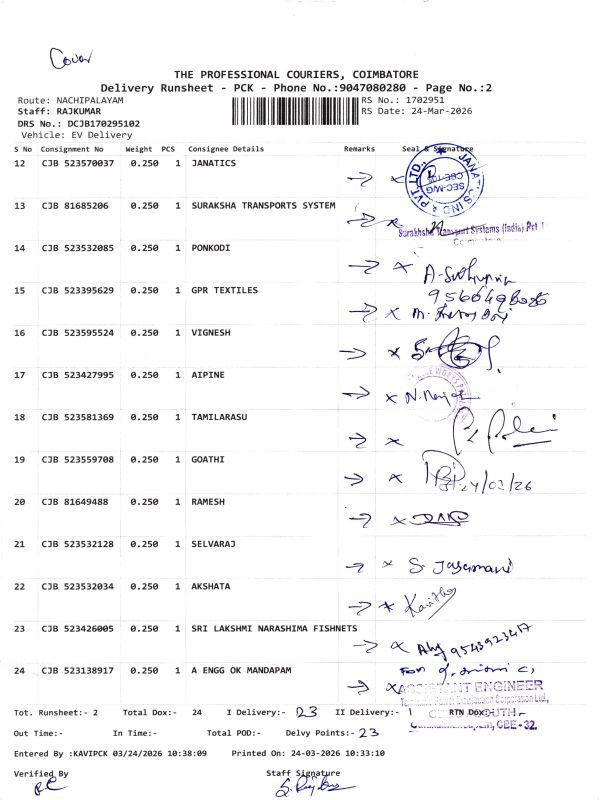 Cover
THE PROFESSIONAL COURIERS, COIMBATORE
Delivery Runsheet - PCK - Phone No.:9047080280 - Page No.:2
Route: NACHIPALAYAM RS No.: 1702951
Staff: RAJKUMAR RS Date: 24-Mar-2026
DRS No.: DCJB170295102
Vehicle: EV Delivery
S No Consignment No Weight PCS Consignee Details Remarks Seal & Signature
12 CJB 523570037 0.250 1 JANATICS
13 CJB 81685206 0.250 1 SURAKSHA TRANSPORTS SYSTEM
Surakhsha Transport Systems (India) Pvt
14 CJB 523532085 0.250 1 PONKODI
15 CJB 523395629 0.250 1 GPR TEXTILES
16 CJB 523595524 0.250 1 VIGNESH
17 CJB 523427995 0.250 1 AIPINE
18 CJB 523581369 0.250 1 TAMILARASU
19 CJB 523559708 0.250 1 GOATHI
20 CJB 81649488 0.250 1 RAMESH
21 CJB 523532128 0.250 1 SELVARAJ
22 CJB 523532034 0.250 1 AKSHATA
23 CJB 523426005 0.250 1 SRI LAKSHMI NARASHIMA FISHNETS
24 CJB 523138917 0.250 1 A ENGG OK MANDAPAM
ASSISTANT ENGINEER
Tot. Runsheet:- 2 Total Dox:- 24 I Delivery:- 23 II Delivery:- 1 RTN Dox:-
Out Time:- In Time:- Total POD:- Delvy Points:- 23
CBE - 32.
Entered By :KAVIPCK 03/24/2026 10:38:09 Printed On: 24-03-2026 10:33:10
Verified By Staff Signature